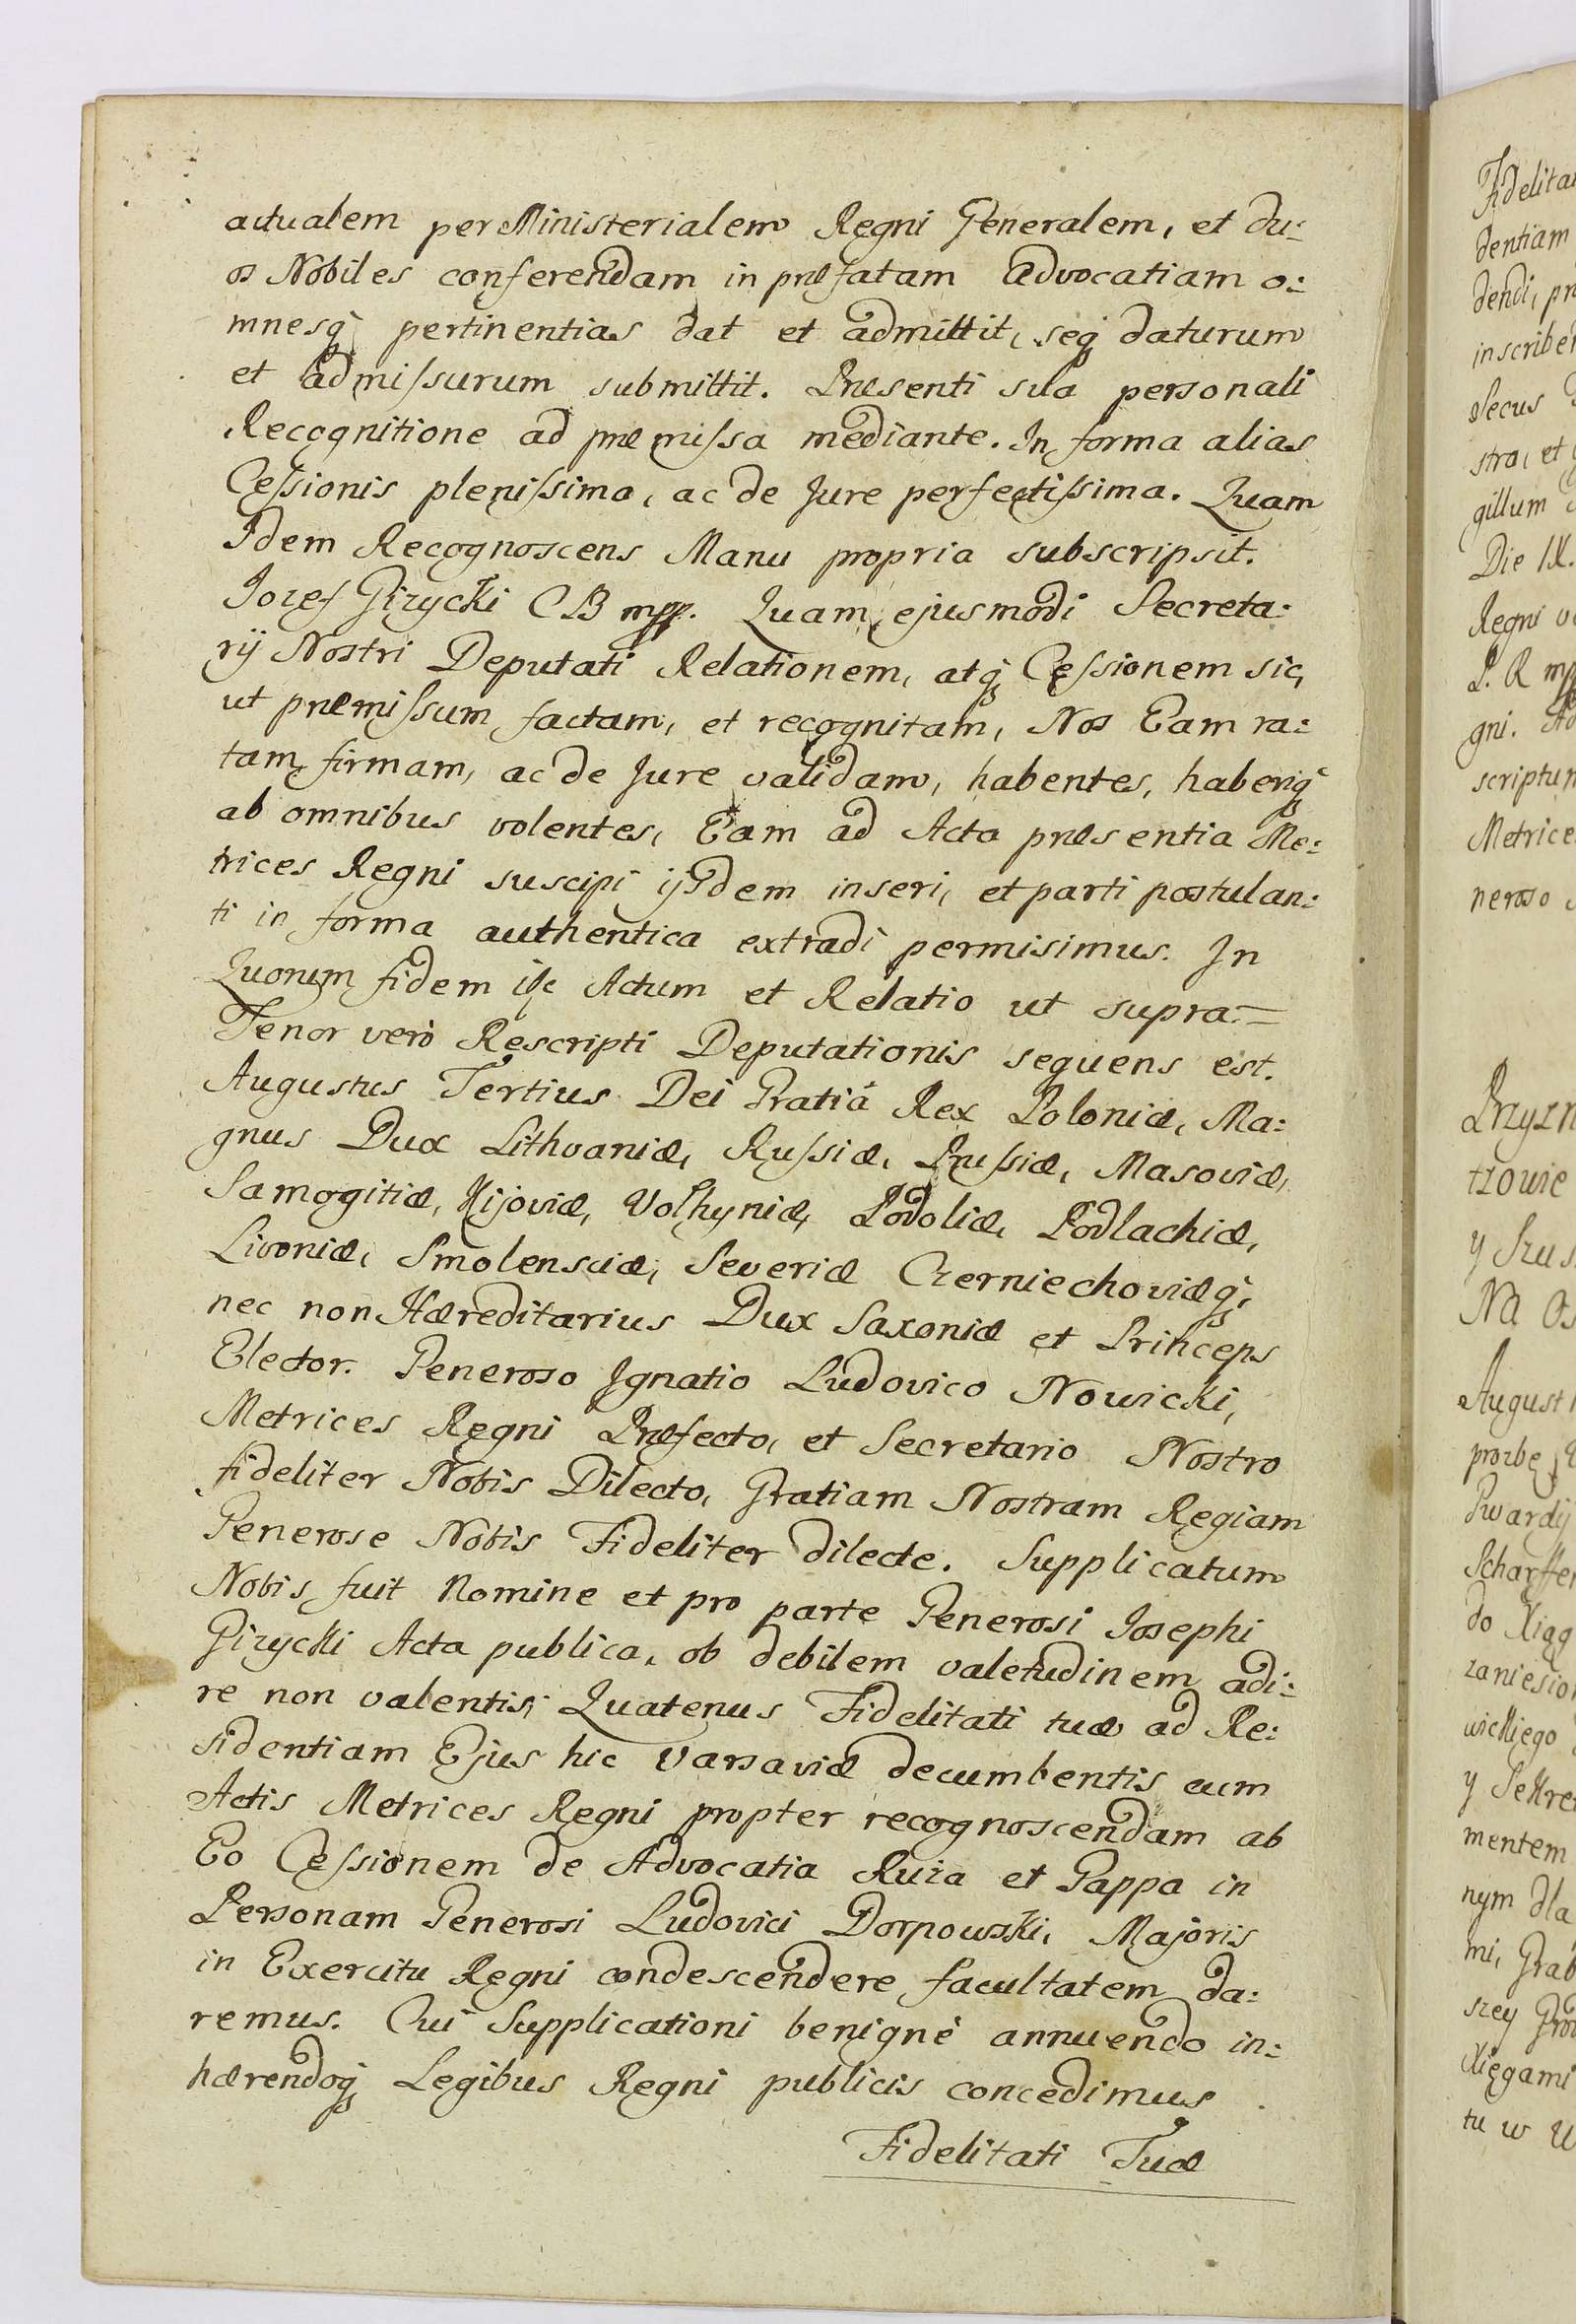 actualem per Ministerialem Regni Generalem, et du:
os Nobiles conferendam in præfatam Advocatiam o:
mnesq̃ pertinentias dat et admittit, seq̃ daturum
et admiſsurum submittit. Præsenti sua personali
Recognitione ad præmiſsa mediante. In forma alias
Ceſsionis pleniſsima, ac de Jure perfectiſsima. Quam
Idem Recognoscens Manu propria subscripsit.
Jozef Gizycki CB mpp. Quam ejusmodi Secreta:
rij Nostri Deputati Relationem, atq̃ Ceſsionem sic,
ut præmiſsum factam, et recognitam, Nos Eam ra:
tam firmam, ac de Jure validam, habentes, haberiq̃
ab omnibus volentes, Eam ad Acta præsentia Me:
trices Regni suscipi ijsdem inseri, et parti postulan:
ti in forma authentica extradi permisimus. In
Quorum fidem Actum et Relatio ut supra.=
Tenor verò Rescripti Deputationis sequens est.
Augustus Tertius Dei Gratiâ Rex Poloniæ, Ma:
gnus Dux Lithvaniæ, Ruſsiæ, Pruſsiæ, Masoviæ,
Samogitiæ, Kijoviæ, Volhyniæ, Podoliæ, Podlachiæ,
Livoniæ, Smolensciæ, Severiæ Czerniechoviæq̃,
nec non Hæreditarius Dux Saxoniæ et Princeps
Elector. Generoso Ignatio Ludovico Nowicki,
Metrices Regni Præfecto, et Secretario Nostro
fideliter Nobis Dilecto, Gratiam Nostram Regiam
Generose Nobis Fideliter dilecte. Supplicatum
Nobis fuit Nomine et pro parte Generosi Josephi
Gizycki Acta publica, ob debilem valetudinem adi:
re non valentis, Quatenus Fidelitati tuæ ad Re:
sidentiam Ejus hic Varsaviæ decumbentis cum
Actis Metrices Regni propter recognoscendam ab
Eo Ceſsionem de Advocatia Ruza et Gappa in
Personam Generosi Ludovici Dorpowski, Majoris
in Exercitu Regni condescendere facultatem da:
remus. Cui Supplicationi benignè annuendo in:
hærendoq̃ Legibus Regni publicis concedimus
Fidelitati Tuæ
dentiam
dendi,
Secus
gillum
Die IX.
Regni
gni.
Metrice
neroso
y
Na
do
y
mentem
nym dla
tu w